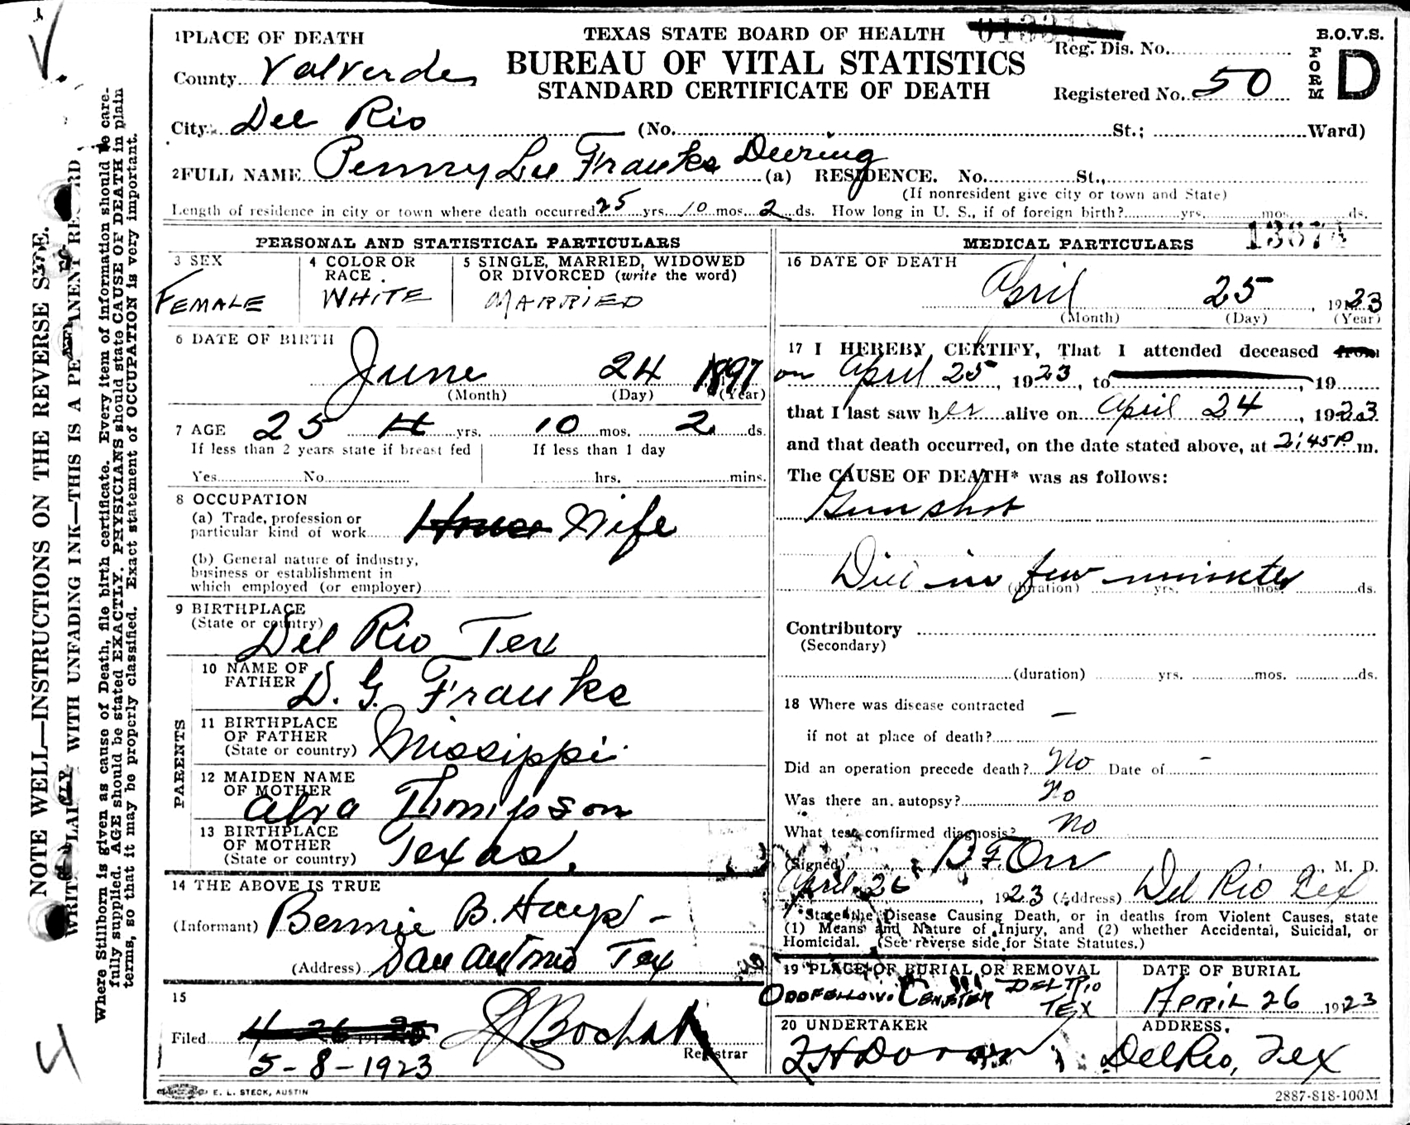 TEXAS STATE BOARD OF HEALTH
BUREAU OF VITAL STATISTICS
STANDARD CERTIFICATE OF DEATH
B.O.V.S.
FORM D
Reg. Dis. No.
Registered No. 50
1 PLACE OF DEATH
County Valverde
City Del Rio (No. St.; Ward)
2 FULL NAME Penny Lee Franks Deering (a) RESIDENCE. No. St.,
(If nonresident give city or town and State)
Length of residence in city or town where death occurred 25 yrs. 10 mos. 2 ds. How long in U. S., if of foreign birth? yrs. mos. ds.
PERSONAL AND STATISTICAL PARTICULARS
3 SEX
FEMALE
4 COLOR OR RACE
WHITE
5 SINGLE, MARRIED, WIDOWED
OR DIVORCED (write the word)
MARRIED
6 DATE OF BIRTH
June 24 1897
(Month) (Day) (Year)
7 AGE 25 yrs. 10 mos. 2 ds.
If less than 2 years state if breast fed
Yes No
If less than 1 day
hrs. mins.
8 OCCUPATION
(a) Trade, profession or
particular kind of work House Wife
(b) General nature of industry,
business or establishment in
which employed (or employer)
9 BIRTHPLACE
(State or country)
Del Rio Tex
PARENTS
10 NAME OF
FATHER D. G. Franks
11 BIRTHPLACE
OF FATHER
(State or country) Missippi
12 MAIDEN NAME
OF MOTHER
Alva Thompson
13 BIRTHPLACE
OF MOTHER
(State or country) Texas.
14 THE ABOVE IS TRUE
(Informant) Bennie B. Hays -
(Address) San Antonio Tex
15
Filed 4 26
5-8-1923
Registrar
MEDICAL PARTICULARS
16 DATE OF DEATH
April 25 1923
(Month) (Day) (Year)
17 I HEREBY CERTIFY, That I attended deceased from
on April 25, 1923, to , 19
that I last saw her alive on April 24, 1923
and that death occurred, on the date stated above, at 2:45P m.
The CAUSE OF DEATH* was as follows:
Gun shot
Died in few minutes
(duration) yrs. mos. ds.
Contributory
(Secondary)
(duration) yrs. mos. ds.
18 Where was disease contracted
if not at place of death? —
Did an operation precede death? No Date of -
Was there an autopsy? No
What test confirmed diagnosis? No
(Signed) B F Orr M. D.
April 26, 1923 (Address) Del Rio Tex
*State the Disease Causing Death, or in deaths from Violent Causes, state
(1) Means and Nature of Injury, and (2) whether Accidental, Suicidal, or
Homicidal. (See reverse side for State Statutes.)
19 PLACE OF BURIAL OR REMOVAL
DEL RIO
TEX
DATE OF BURIAL
APRIL 26 1923
20 UNDERTAKER
ADDRESS,
Del Rio, Tex
E. L. STECK, AUSTIN
2887-818-100M
NOTE WELL—INSTRUCTIONS ON THE REVERSE SIDE.
WRITE PLAINLY WITH UNFADING INK—THIS IS A PERMANENT RECORD
Where Stillborn is given as cause of Death, file birth certificate. Every item of information should be care-
fully supplied. AGE should be stated EXACTLY. PHYSICIANS should state CAUSE OF DEATH in plain
terms, so that it may be properly classified. Exact statement of OCCUPATION is very important.
4